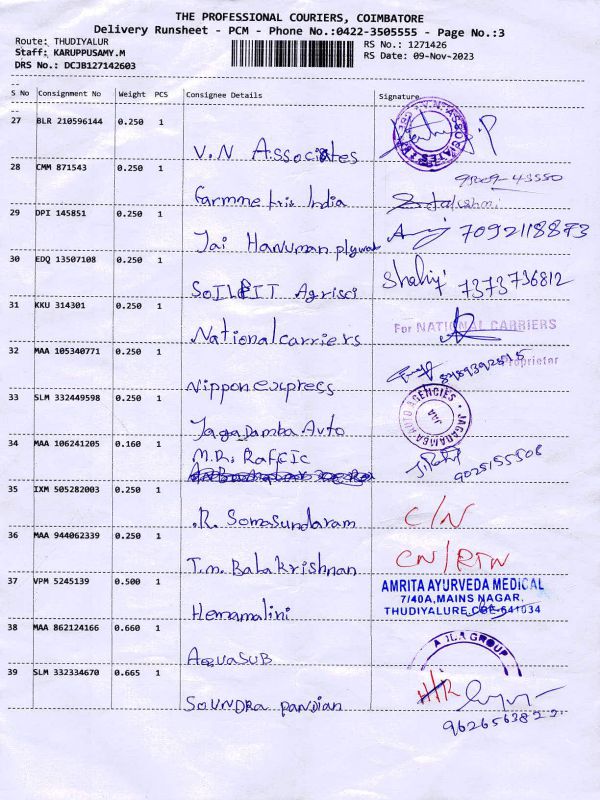 THE PROFESSIONAL COURIERS, COIMBATORE
Delivery Runsheet - PCM - Phone No.:0422-3505555 - Page No.:3
Route: THUDIYALUR
Staff: KARUPPUSAMY.M
DRS No.: DCJB127142603
RS No.: 1271426
RS Date: 09-Nov-2023
S No Consignment No Weight PCS Consignee Details Signature
27 BLR 210596144 0.250 1
V.N Associates
28 CMM 871543 0.250 1
Garmnetris India
29 DPI 145851 0.250 1
Jai Hanuman plywud 7092118873
30 EDQ 13507108 0.250 1
SOILFIT Agrisci Shahij 7373736812
31 KKU 314301 0.250 1
Nationalcarriers For NATIONAL CARRIERS
32 MAA 105340771 0.250 1 Proprietor
Nippon express
33 SLM 332449598 0.250 1 JAGADAMBA AUTO AGENCIES JAA
Jagadamba Auto
34 MAA 106241205 0.160 1
M.R. Raffic 9025155508
35 IXM 505282003 0.250 1
.R. Somasundaram C/N
36 MAA 944062339 0.250 1
T.M. Balakrishnan CN/RTN
37 VPM 5245139 0.500 1 AMRITA AYURVEDA MEDICAL
7/40A,MAINS NAGAR,
Hemamalini THUDIYALURE,CBE-641034
38 MAA 862124166 0.660 1
AQUASUB GROUP
39 SLM 332334670 0.665 1
SOUNDRA PANDIAN